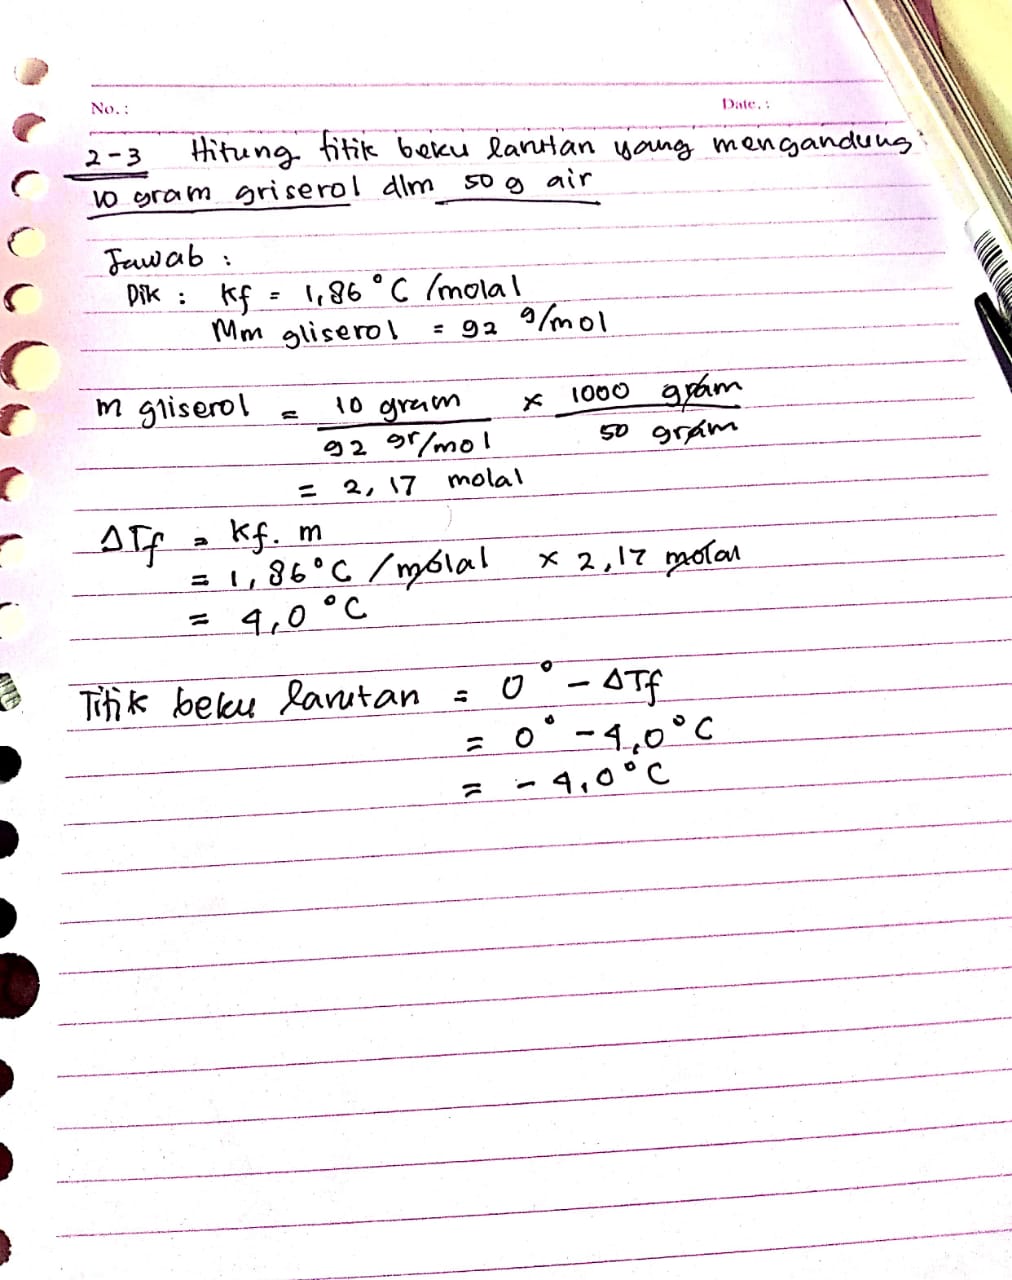 No. :
Date. :
2-3 Hitung titik beku larutan yang mengandung
10 gram griserol dlm 50 g air
Jawab :
Dik : Kf = 1,86 °C /molal
Mm gliserol = 92 g/mol
m gliserol = 10 gram / 92 gr/mol × 1000 gram / 50 gram
= 2,17 molal
ΔTf = Kf. m
= 1,86 °C /molal × 2,17 molal
= 4,0 °C
Titik beku larutan = 0° - ΔTf
= 0° - 4,0 °C
= - 4,0 °C